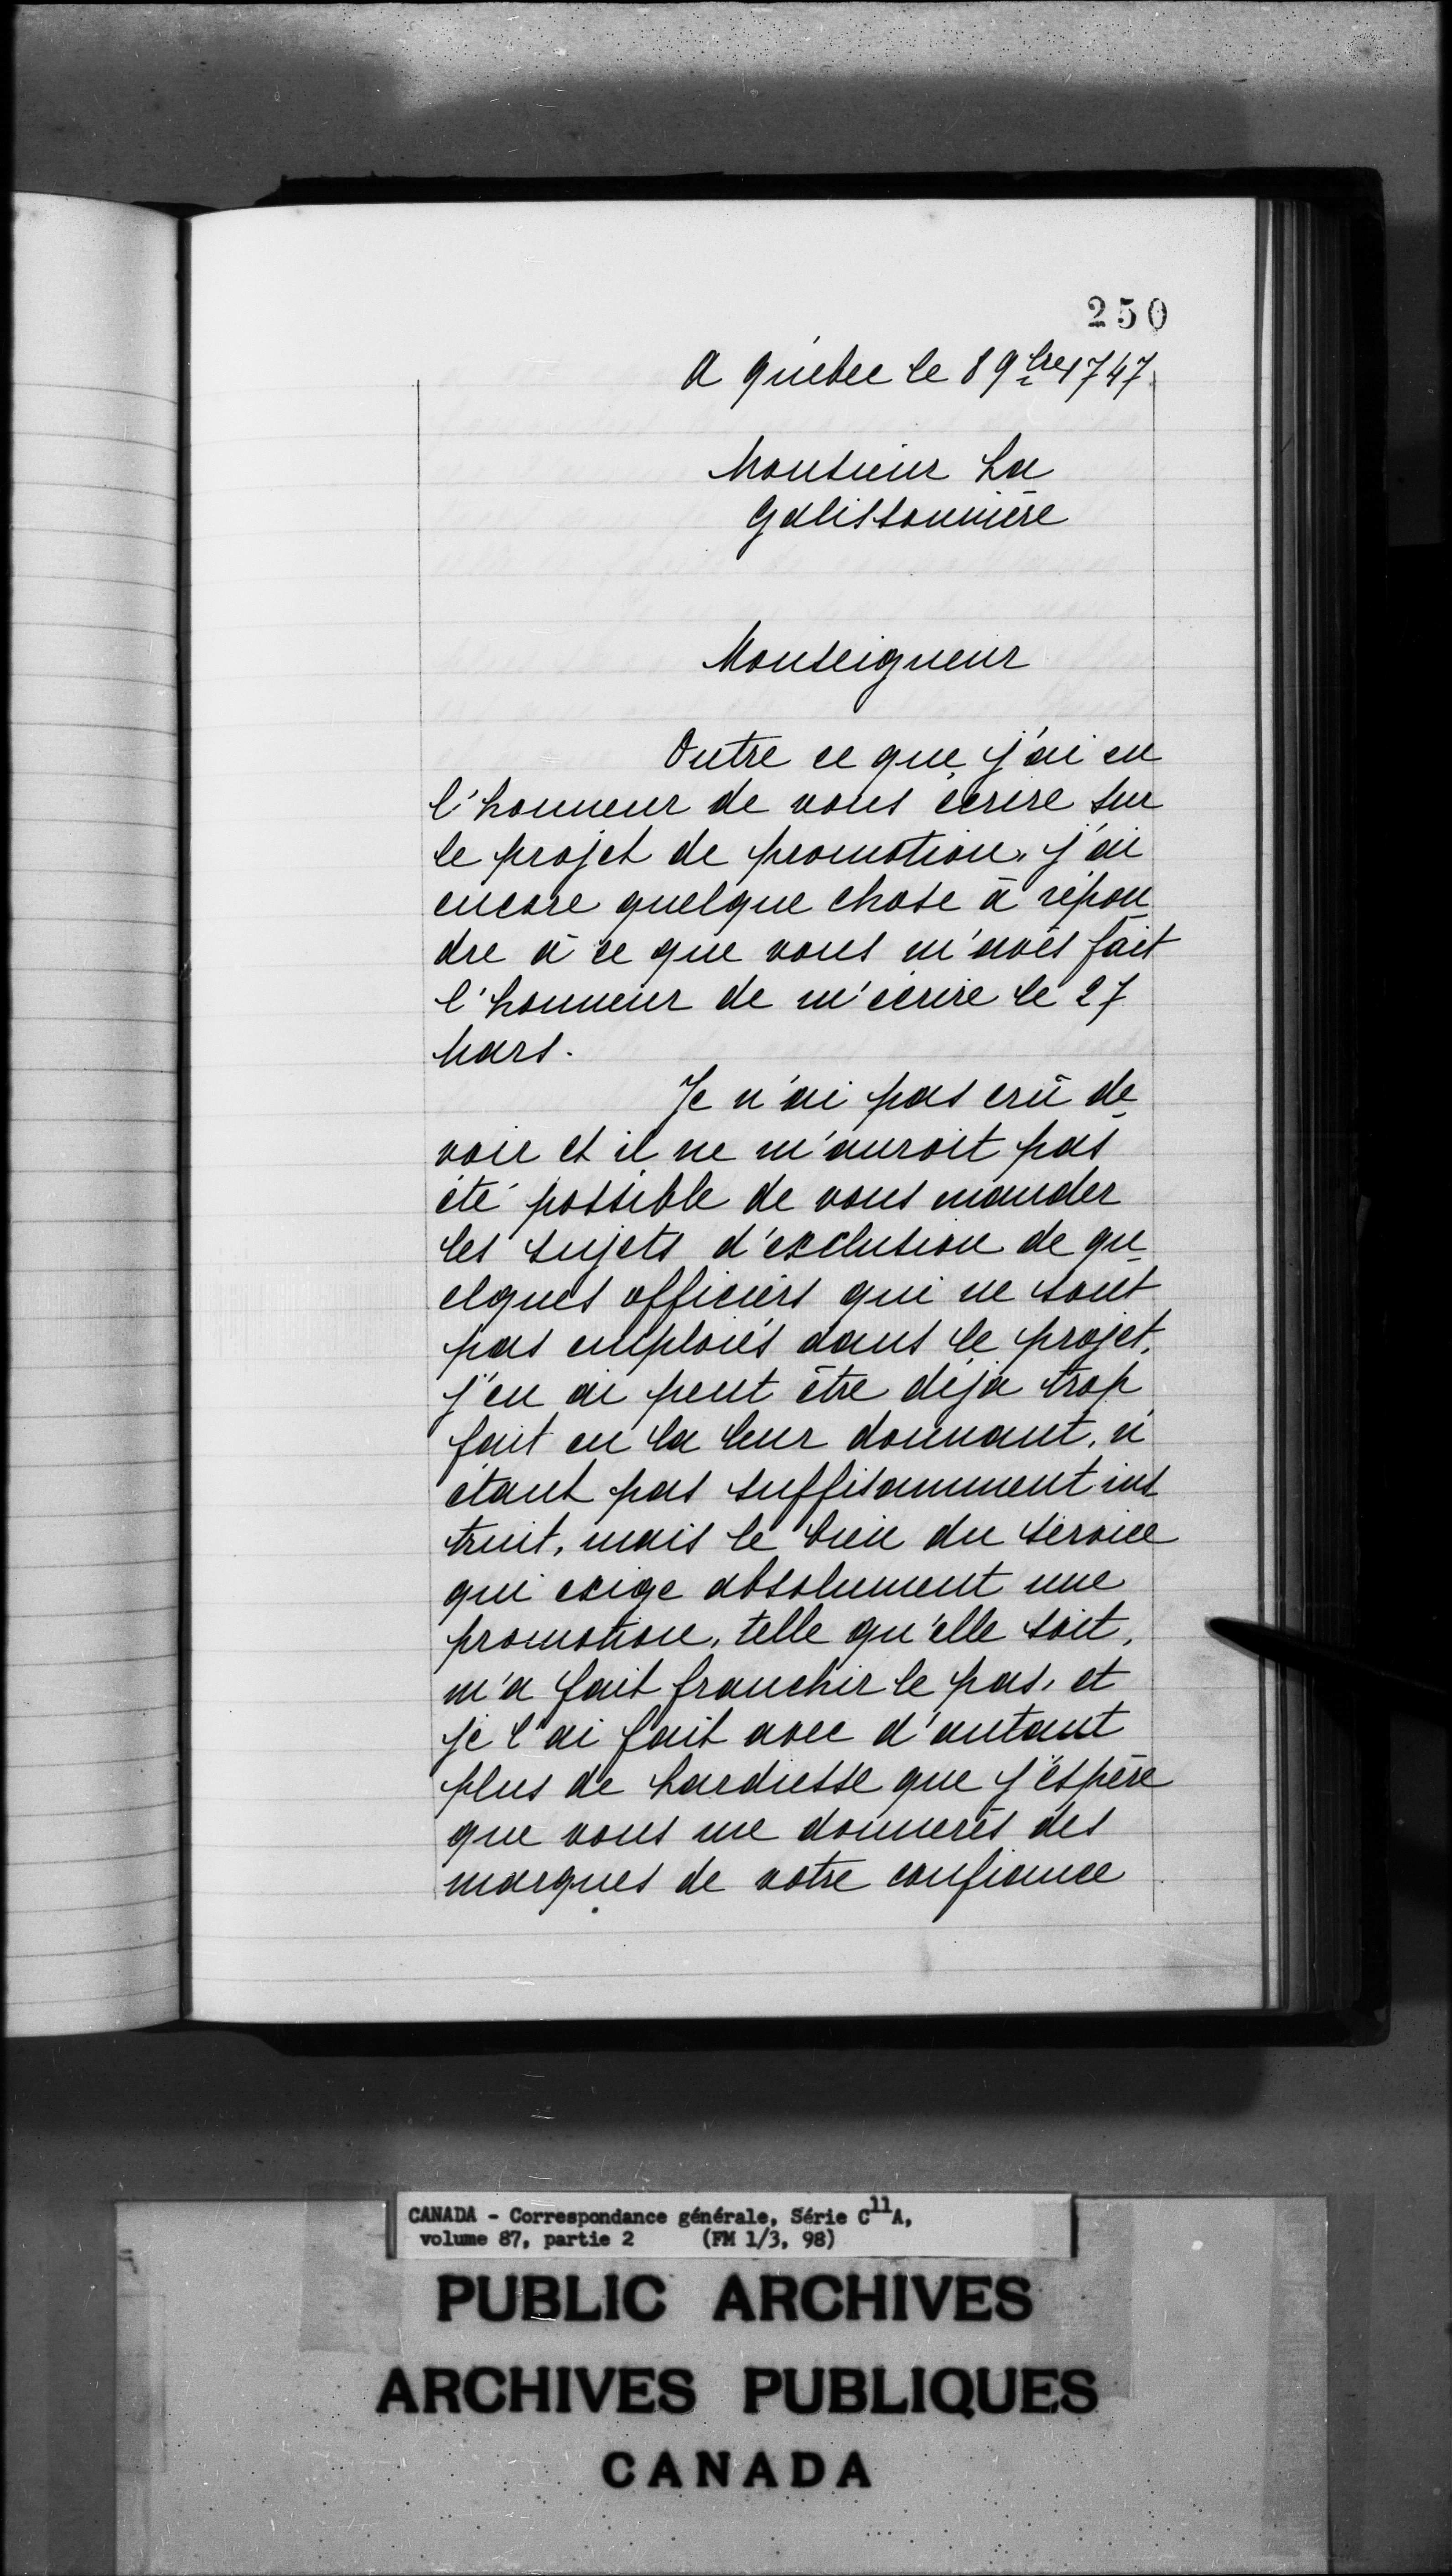 250
A Quebec le 8 9bre 1747.
Monsieur La
Galissonnière
Monseigneur
Outre ce que j'ai eu
l'honneur de vous écrire sur
le projet de promotion, j'ai
encore quelque chose à répon
dre à ce que vous m'avés fait
l'honneur de m'écrire le 27
Mars.
Je n'ai pas crû de
voir et il ne m'auroit pas
été possible de vous mander
les sujets d'exclusion de qu
elques officiers qui ne sont
pas emploiés dans le projet,
j'en ai peut être déja trop
fait en la leur donnant, n'
étant pas suffisamment ins
truit, mais le bien du service
qui exige absolument une
promotion, telle qu'elle soit,
m'a fait franchir le pas, et
je l'ai fait avec d'autant
plus de hardiesse que j'éspère
que vous me donnerés des
marques de votre confiance
CANADA - Correspondance générale, Série C11A,
volume 87, partie 2 (FM 1/3, 98)
PUBLIC ARCHIVES
ARCHIVES PUBLIQUES
CANADA